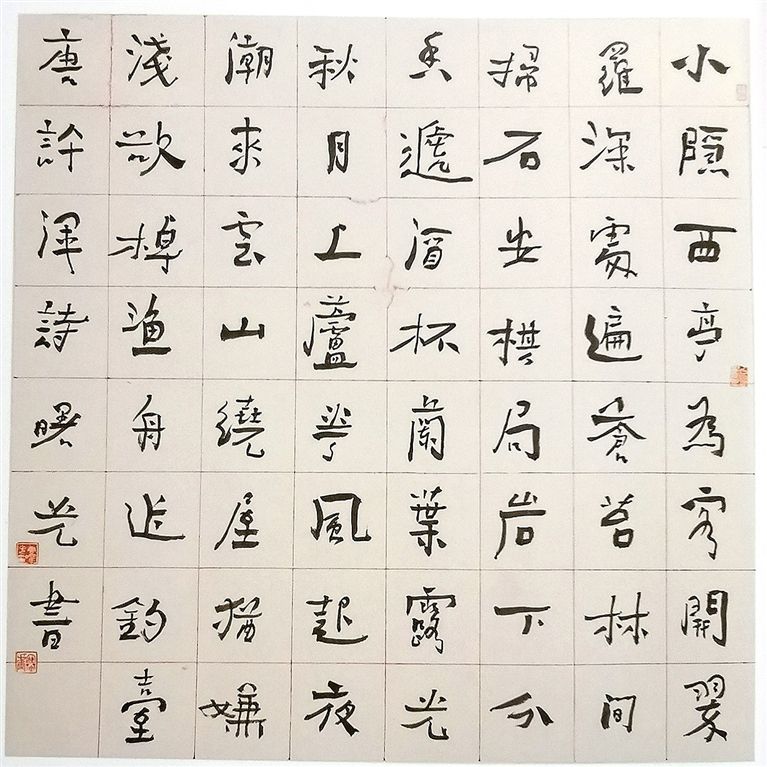 小隱西亭為客開翠
羅深處遍蒼苔林間
掃石安棋局岩下分
泉遞酒杯蘭葉露光
秋月上蘆華風起夜
潮來雲山繞屋猶嫌
淺欲棹漁舟近釣臺
唐許渾詩曙光書